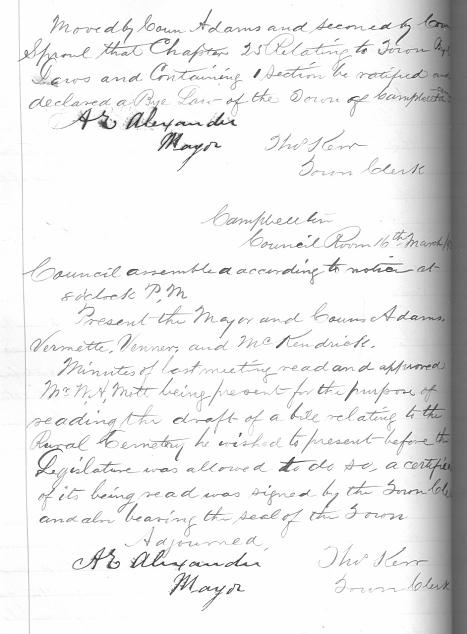 Moved by Coun Adams and seconed by Coun
Sproul that Chapter 25 Relating to Town Bye
Laws and Containing 1 Section be ratified and
declared a Bye Law of the Town of Campbellton
AE Alexander
Mayor
Thos Kerr
Town Clerk
Campbellton
Council Room 16th March/
Council assembled according to notice at
8 oclock P.M
Present the Mayor and Couns Adams.
Vermette, Venner, and McKendrick.
Minutes of last meeting read and approved
Mr W.A. Mott being present for the purpose of
reading the draft of a bill relating to the
Rural Cemetery he wished to present before the
Legislative was allowed to do so, a certifie
of its being read was signed by the Town Cle
and also bearing the seal of the Town
Adjourned,
AE Alexander
Mayor
Thos Kerr
Town Clerk